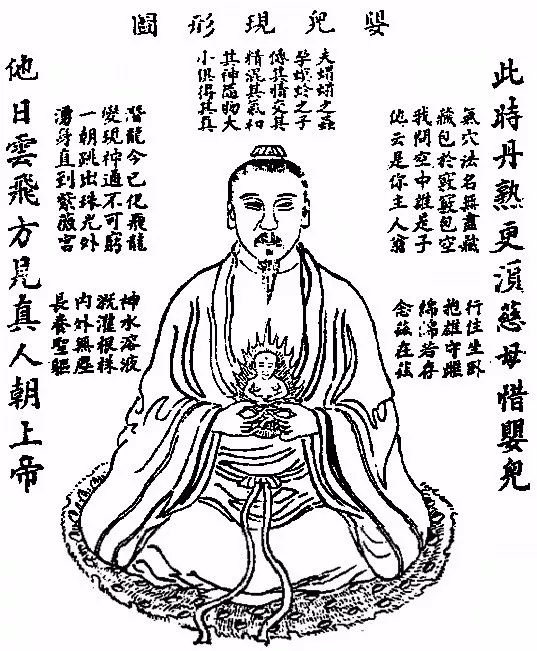 嬰兒現形圖
此時丹熟更須慈母惜嬰兒
氣穴法名無盡藏
藏包於竅竅包空
我問空中誰是子
他云是你主人翁
行住坐臥
抱雄守雌
綿綿若存
念茲在茲
夫之蟲
孕螟蛉之子
傳其情交其
精混其氣和
其神隨物大
小俱得其真
潛龍今已化飛龍
變現神通不可窮
一朝跳出珠光外
湧身直到紫微宮
神水溶液
溉灌根株
內外無塵
長養聖軀
他日雲飛方見真人朝上帝